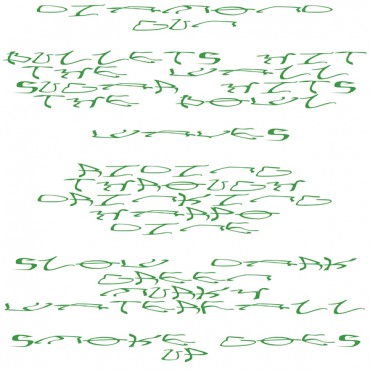 DIAMOND
GUN
BULLETS HIT
THE WALL
SUGAR HITS
THE BOWL
WAVES
RIDING
THROUGH
DRINKING
SLOW DARK
GREEN
WATERFALL
SMOKE GOES
UP